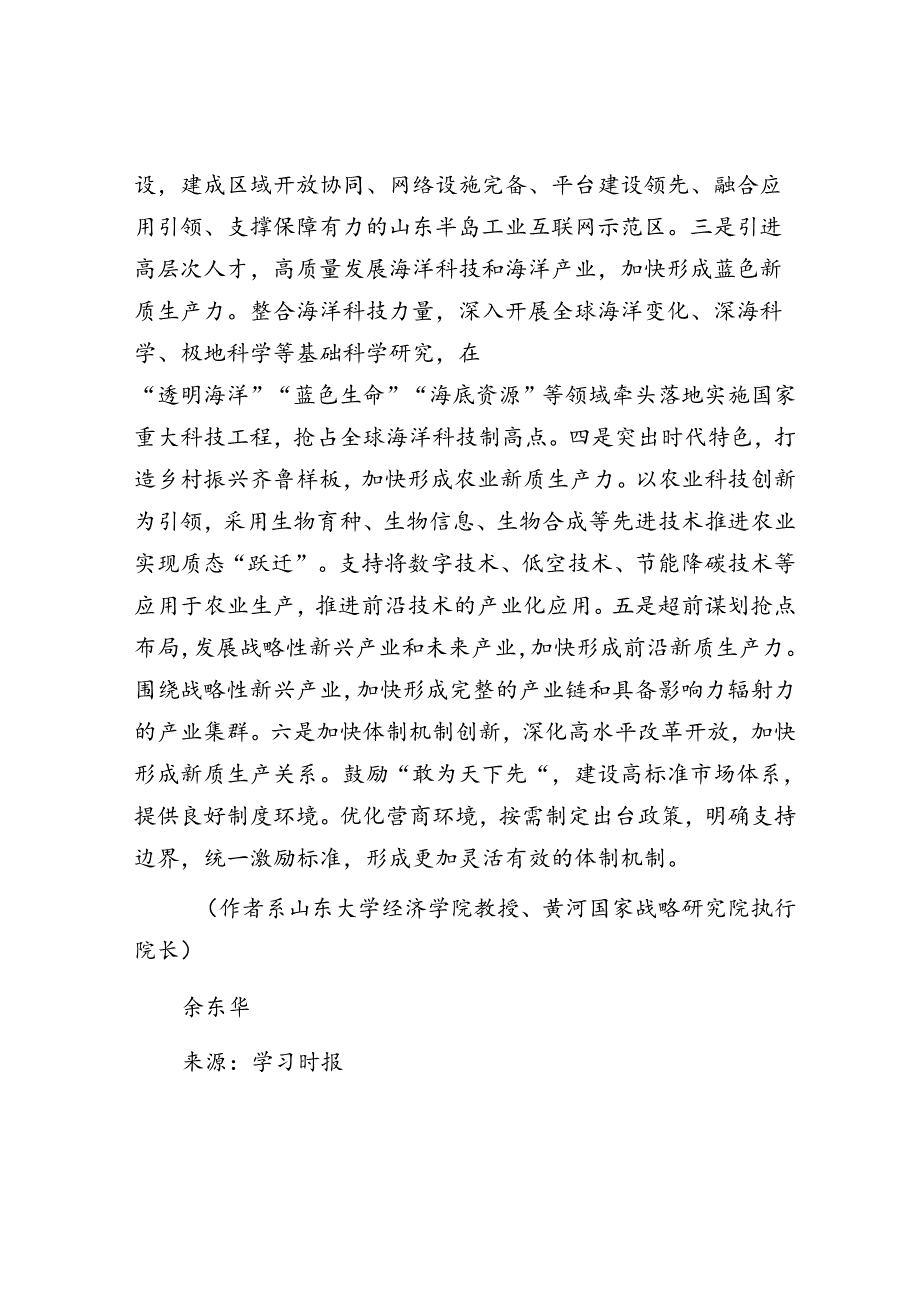 设，建成区域开放协同、网络设施完备、平台建设领先、融合应
用引领、支撑保障有力的山东半岛工业互联网示范区。三是引进
高层次人才，高质量发展海洋科技和海洋产业，加快形成蓝色新
质生产力。整合海洋科技力量，深入开展全球海洋变化、深海科
学、极地科学等基础科学研究，在
“透明海洋”“蓝色生命”“海底资源”等领域牵头落地实施国家
重大科技工程，抢占全球海洋科技制高点。四是突出时代特色，打
造乡村振兴齐鲁样板，加快形成农业新质生产力。以农业科技创新
为引领，采用生物育种、生物信息、生物合成等先进技术推进农业
实现质态“跃迁”。支持将数字技术、低空技术、节能降碳技术等
应用于农业生产，推进前沿技术的产业化应用。五是超前谋划抢点
布局，发展战略性新兴产业和未来产业，加快形成前沿新质生产力。
围绕战略性新兴产业，加快形成完整的产业链和具备影响力辐射力
的产业集群。六是加快体制机制创新，深化高水平改革开放，加快
形成新质生产关系。鼓励“敢为天下先“，建设高标准市场体系，
提供良好制度环境。优化营商环境，按需制定出台政策，明确支持
边界，统一激励标准，形成更加灵活有效的体制机制。
（作者系山东大学经济学院教授、黄河国家战略研究院执行
院长）
余东华
来源：学习时报